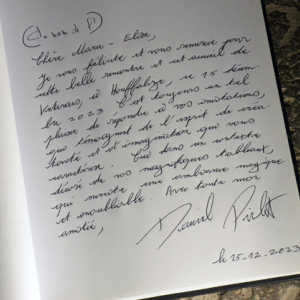 Chère Marie-Elise,
Je vous félicite et vous remercie pour
cette belle rencontre et cet accueil de
à Houffalize, ce 15 décem-
bre 2023. C'est toujours un tel
plaisir de répondre à vos invitations,
qui témoignent de l'esprit de créa-
tivité et d'imagination que vous
caractérise. Ceci dans un contexte
décoré de vos magnifiques tableaux,
qui suscite une ambiance magique
et inoubliable. Avec toute mon
amitié,
Daniel
le 15.12.2023